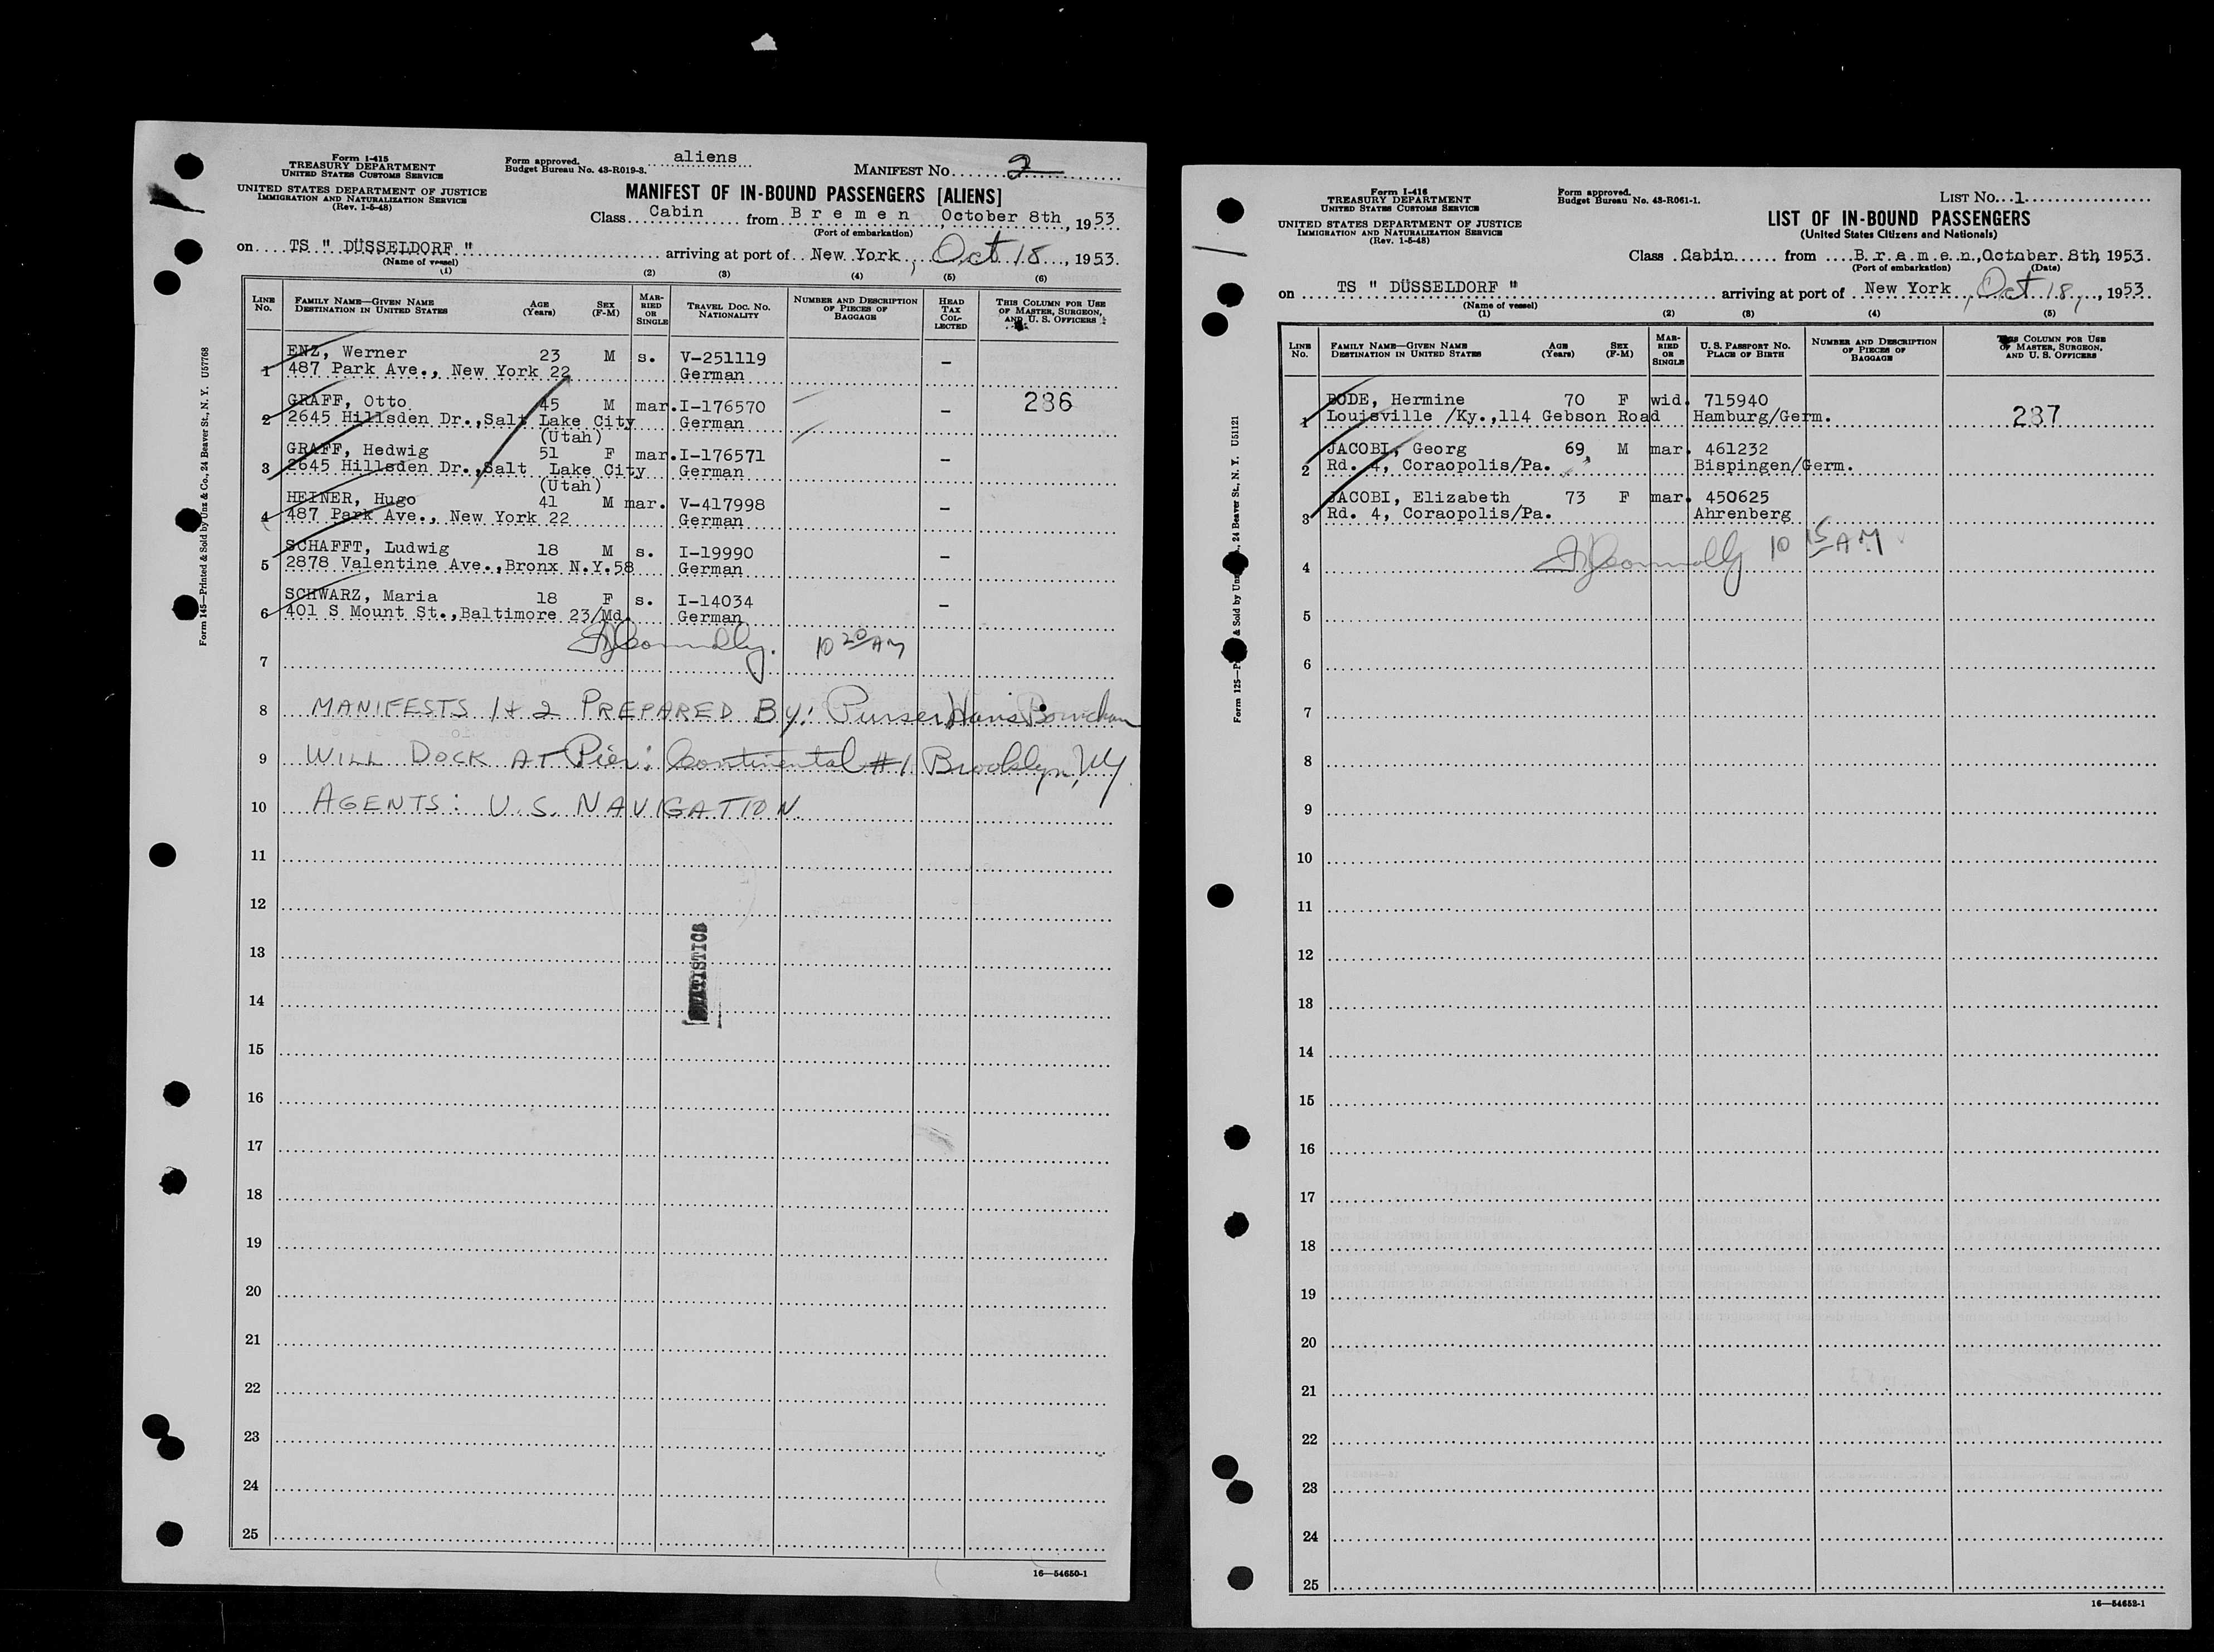 Form I-415
TREASURY DEPARTMENT
UNITED STATES CUSTOMS SERVICE
UNITED STATES DEPARTMENT OF JUSTICE
IMMIGRATION AND NATURALIZATION SERVICE
(Rev. 1-5-48)
Form approved.
Budget Bureau No. 43-R019-3.
aliens
MANIFEST No. 2
MANIFEST OF IN-BOUND PASSENGERS [ALIENS]
Class Cabin from Bremen, October 8th, 1953.
(Port of embarkation)
on TS " DÜSSELDORF " arriving at port of New York, Oct 18, 1953.
(Name of vessel)
(1) (2) (3) (4) (5) (6)
LINE No.
FAMILY NAME—GIVEN NAME
DESTINATION IN UNITED STATES
AGE (Years)
SEX (F-M)
MARRIED OR SINGLE
TRAVEL DOC. NO.
NATIONALITY
NUMBER AND DESCRIPTION OF PIECES OF BAGGAGE
HEAD TAX COLLECTED
THIS COLUMN FOR USE OF MASTER, SURGEON, AND U. S. OFFICERS
1 ENZ, Werner 23 M s. V-251119 –
487 Park Ave., New York 22 German
2 GRAFF, Otto 45 M mar. I-176570 – 286
2645 Hillsden Dr.,Salt Lake City German
(Utah)
3 GRAFF, Hedwig 51 F mar. I-176571 –
2645 Hillsden Dr.,Salt Lake City German
(Utah)
4 HEINER, Hugo 41 M mar. V-417998 –
487 Park Ave., New York 22 German
5 SCHAFFT, Ludwig 18 M s. I-19990 –
2878 Valentine Ave.,Bronx N.Y.58 German
6 SCHWARZ, Maria 18 F s. I-14034 –
401 S Mount St.,Baltimore 23/Md. German
Connolly. 10 20 AM
7
8 MANIFESTS 1 + 2 PREPARED BY: Purser Hans
9 WILL DOCK AT Pier: Continental #1 Brooklyn, NY
10 AGENTS: U.S. NAVIGATION.
11
12
13
14
15
16
17
18
19
20
21
22
23
24
25
STATISTICS
Form 145—Printed & Sold by Unz & Co., 24 Beaver St., N. Y. U57768
16—54650-1
Form I-416
TREASURY DEPARTMENT
UNITED STATES CUSTOMS SERVICE
UNITED STATES DEPARTMENT OF JUSTICE
IMMIGRATION AND NATURALIZATION SERVICE
(Rev. 1-5-48)
Form approved.
Budget Bureau No. 43-R061-1.
LIST No. 1
LIST OF IN-BOUND PASSENGERS
(United States Citizens and Nationals)
Class Cabin from Bremen, October 8th, 1953.
(Port of embarkation) (Date)
on TS " DÜSSELDORF " arriving at port of New York, Oct 18, 1953.
(Name of vessel)
(1) (2) (3) (4) (5)
LINE No.
FAMILY NAME—GIVEN NAME
DESTINATION IN UNITED STATES
AGE (Years)
SEX (F-M)
MARRIED OR SINGLE
U. S. PASSPORT NO.
PLACE OF BIRTH
NUMBER AND DESCRIPTION OF PIECES OF BAGGAGE
THIS COLUMN FOR USE OF MASTER, SURGEON, AND U. S. OFFICERS
1 BODE, Hermine 70 F wid. 715940 287
Louisville /Ky.,114 Gebson Road Hamburg/Germ.
2 JACOBI, Georg 69 M mar. 461232
Rd. 4, Coraopolis/Pa. Bispingen/Germ.
3 JACOBI, Elizabeth 73 F mar. 450625
Rd. 4, Coraopolis/Pa. Ahrenberg
Connolly 10 15 AM
4
5
6
7
8
9
10
11
12
13
14
15
16
17
18
19
20
21
22
23
24
25
Form 125— & Sold by Unz , 24 Beaver St., N. Y. U51121
16—54652-1